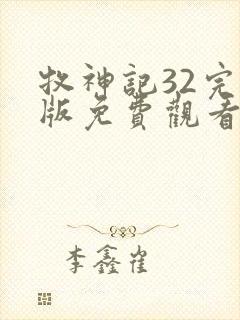 牧神記32完
版免費觀看
李鑫崔